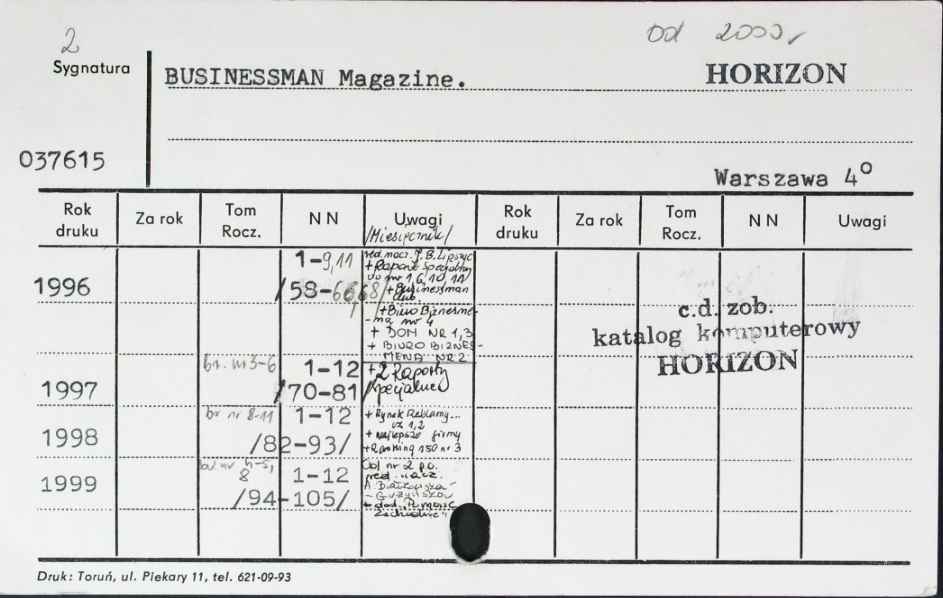 2
od 2000,
Sygnatura
BUSINESSMAN Magazine.
HORIZON
037615
Warszawa 4º
Rok druku
Za rok
Tom Rocz.
N N
Uwagi
/Miesięcznik/
Rok druku
Za rok
Tom Rocz.
N N
Uwagi
1996
1-9,11
/58-6668/
red. nacz. J. B. Lipszyc
+ Raport Specjalny
do nr 1 6, 10 11
+ Businessman
club.
+ Biuro Biznesme-
-na nr 4
+ DOM NR 1,3
+ BIURO BIZNES-
MENA NR 2
c.d. zob.
katalog komputerowy
HORIZON
1997
br. nr 3-6
1-12
/70-81/
+ 2 Raporty
specjalne
1998
br nr 8-11
1-12
/82-93/
+ Rynek Reklamy...
cz 1,2
+ najlepsze firmy
+ Ranking 150 nr 3
1999
br nr 4-5,
8
1-12
/94-105/
Od nr 2 p.o.
red. nacz.
+ dod. "Pomorze
Zachodnie"
Druk: Toruń, ul. Piekary 11, tel. 621-09-93